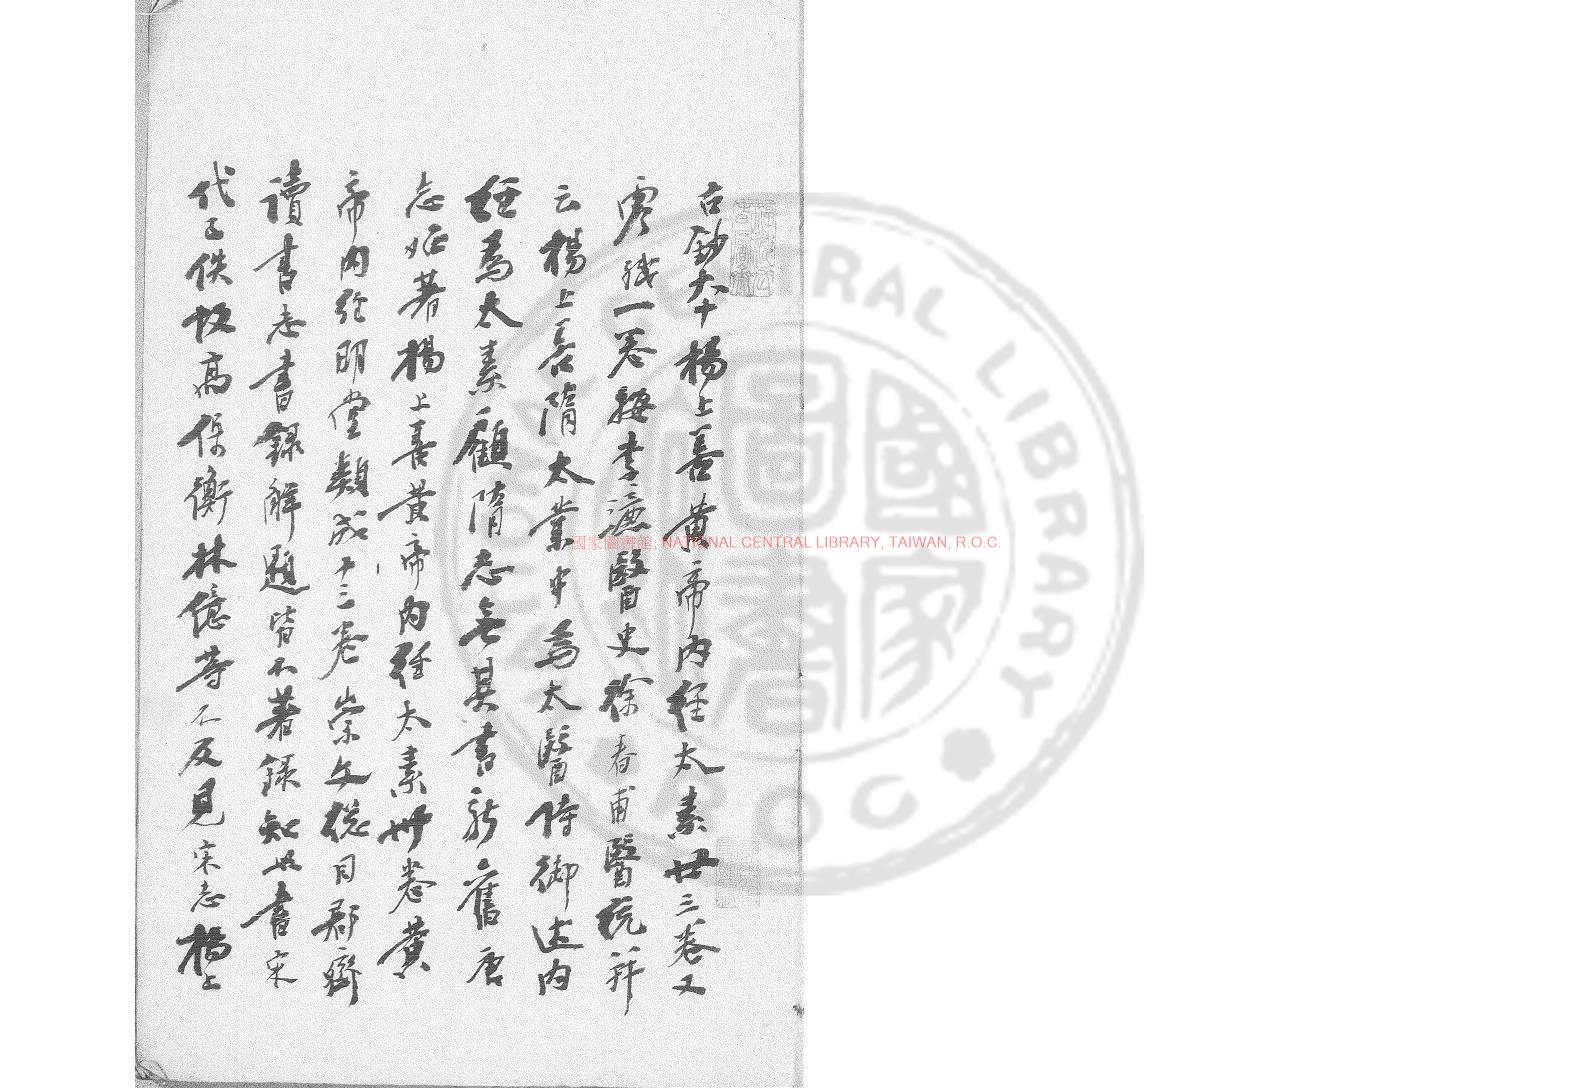 古鈔卷子本楊上善黃帝內經太素廿三卷又
零殘一卷按李濂醫史徐春甫醫統并
云楊上善隋大業中爲太醫侍御述內
經爲太素顧隋志無其書新舊唐
志始著楊上善黃帝內經太素卅卷黃
帝內經明堂類成十三卷崇文總目郡齋
讀書志書錄解題皆不著錄知此書宋
代已佚故高保衡林億等不及見宋志楊上
國家圖書館, NATIONAL CENTRAL LIBRARY, TAIWAN, R.O.C.
NATIONAL CENTRAL LIBRARY
國家圖書
ROC